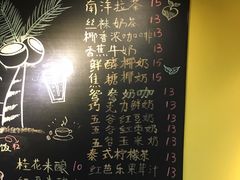 南洋拉茶 15
丝袜奶茶 13
椰香浓咖啡 15
香蕉牛奶 13
鲜醇椰奶 15
焦糖椰奶 15
鸳鸯奶茶 13
巧克力鲜奶 13
五谷红豆奶 13
五谷花生奶 13
五谷玉米奶 13
泰式柠檬茶 13
桂花米酿 10
红芭乐果茸汁 13